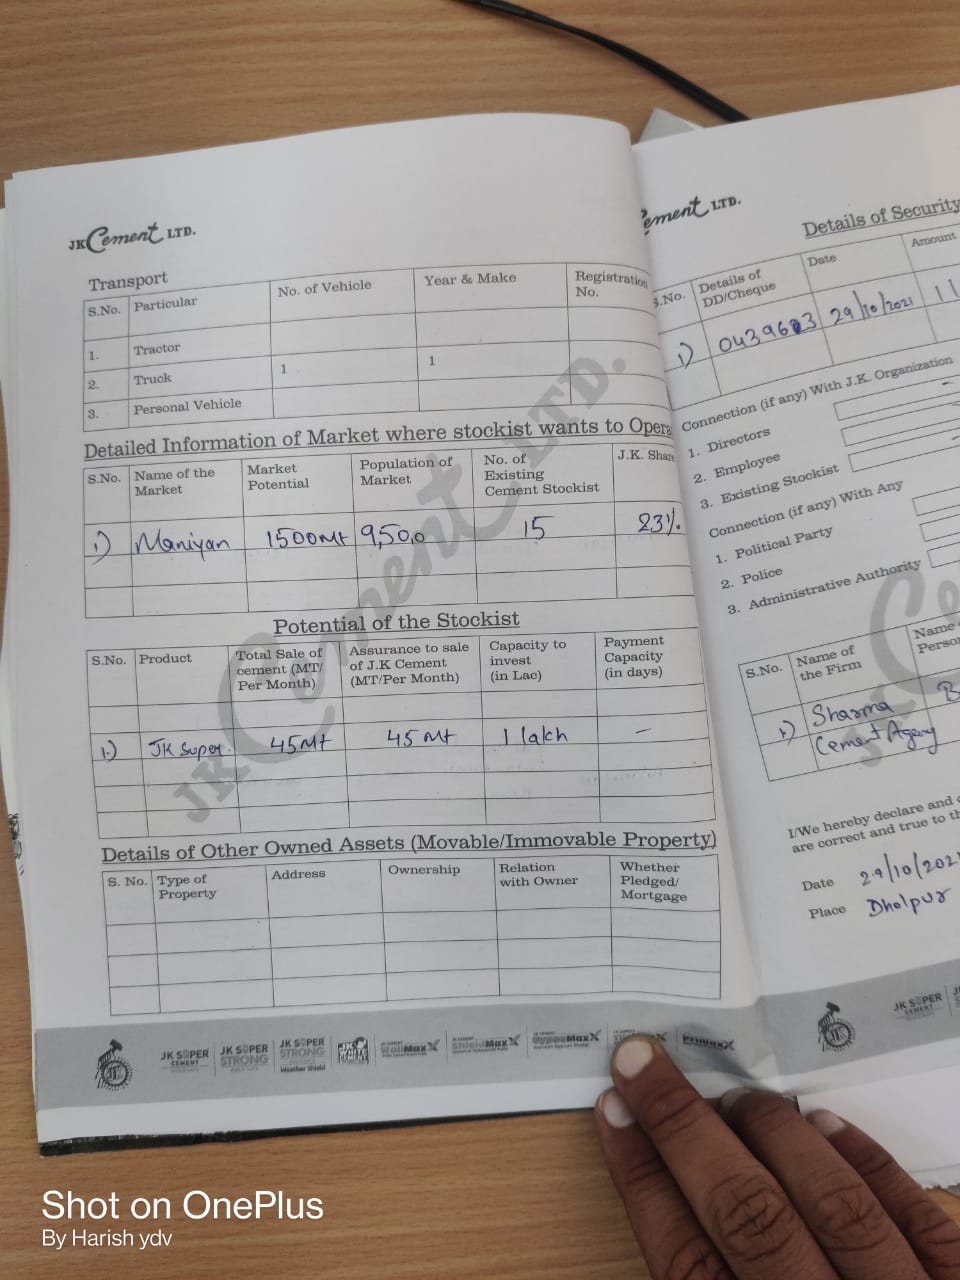 JK Cement LTD.
Transport
S.No. Particular No. of Vehicle Year & Make Registration No.
1. Tractor
2. Truck 1 1
3. Personal Vehicle
Detailed Information of Market where stockist wants to Opera
S.No. Name of the Market Market Potential Population of Market No. of Existing Cement Stockist J.K. Share
1) Maniyan 1500Mt 9,50,0 15 23%
Potential of the Stockist
S.No. Product Total Sale of cement (MT/ Per Month) Assurance to sale of J.K Cement (MT/Per Month) Capacity to invest (in Lac) Payment Capacity (in days)
1.) JK Super. 45Mt 45 Mt 1 lakh –
Details of Other Owned Assets (Movable/Immovable Property)
S. No. Type of Property Address Ownership Relation with Owner Whether Pledged/ Mortgage
JK CEMENT LTD.
JK SUPER CEMENT
JK SUPER STRONG
JK SUPER STRONG Weather Shield
WallMaxX
ShieldMaxX
GypsoMaxX
PrimaxX
ement LTD.
Details of Security
S.No. Details of DD/Cheque Date Amount
1) 29/10/2021 11
Connection (if any) With J.K. Organization
1. Directors
2. Employee
3. Existing Stockist
Connection (if any) With Any
1. Political Party
2. Police
3. Administrative Authority
S.No. Name of the Firm Name Person
1) Sharma Cement Agency B
I/We hereby declare and
are correct and true to th
Date 29/10/2021
Place Dholpur
JK SUPER CEMENT
Shot on OnePlus
By Harish ydv